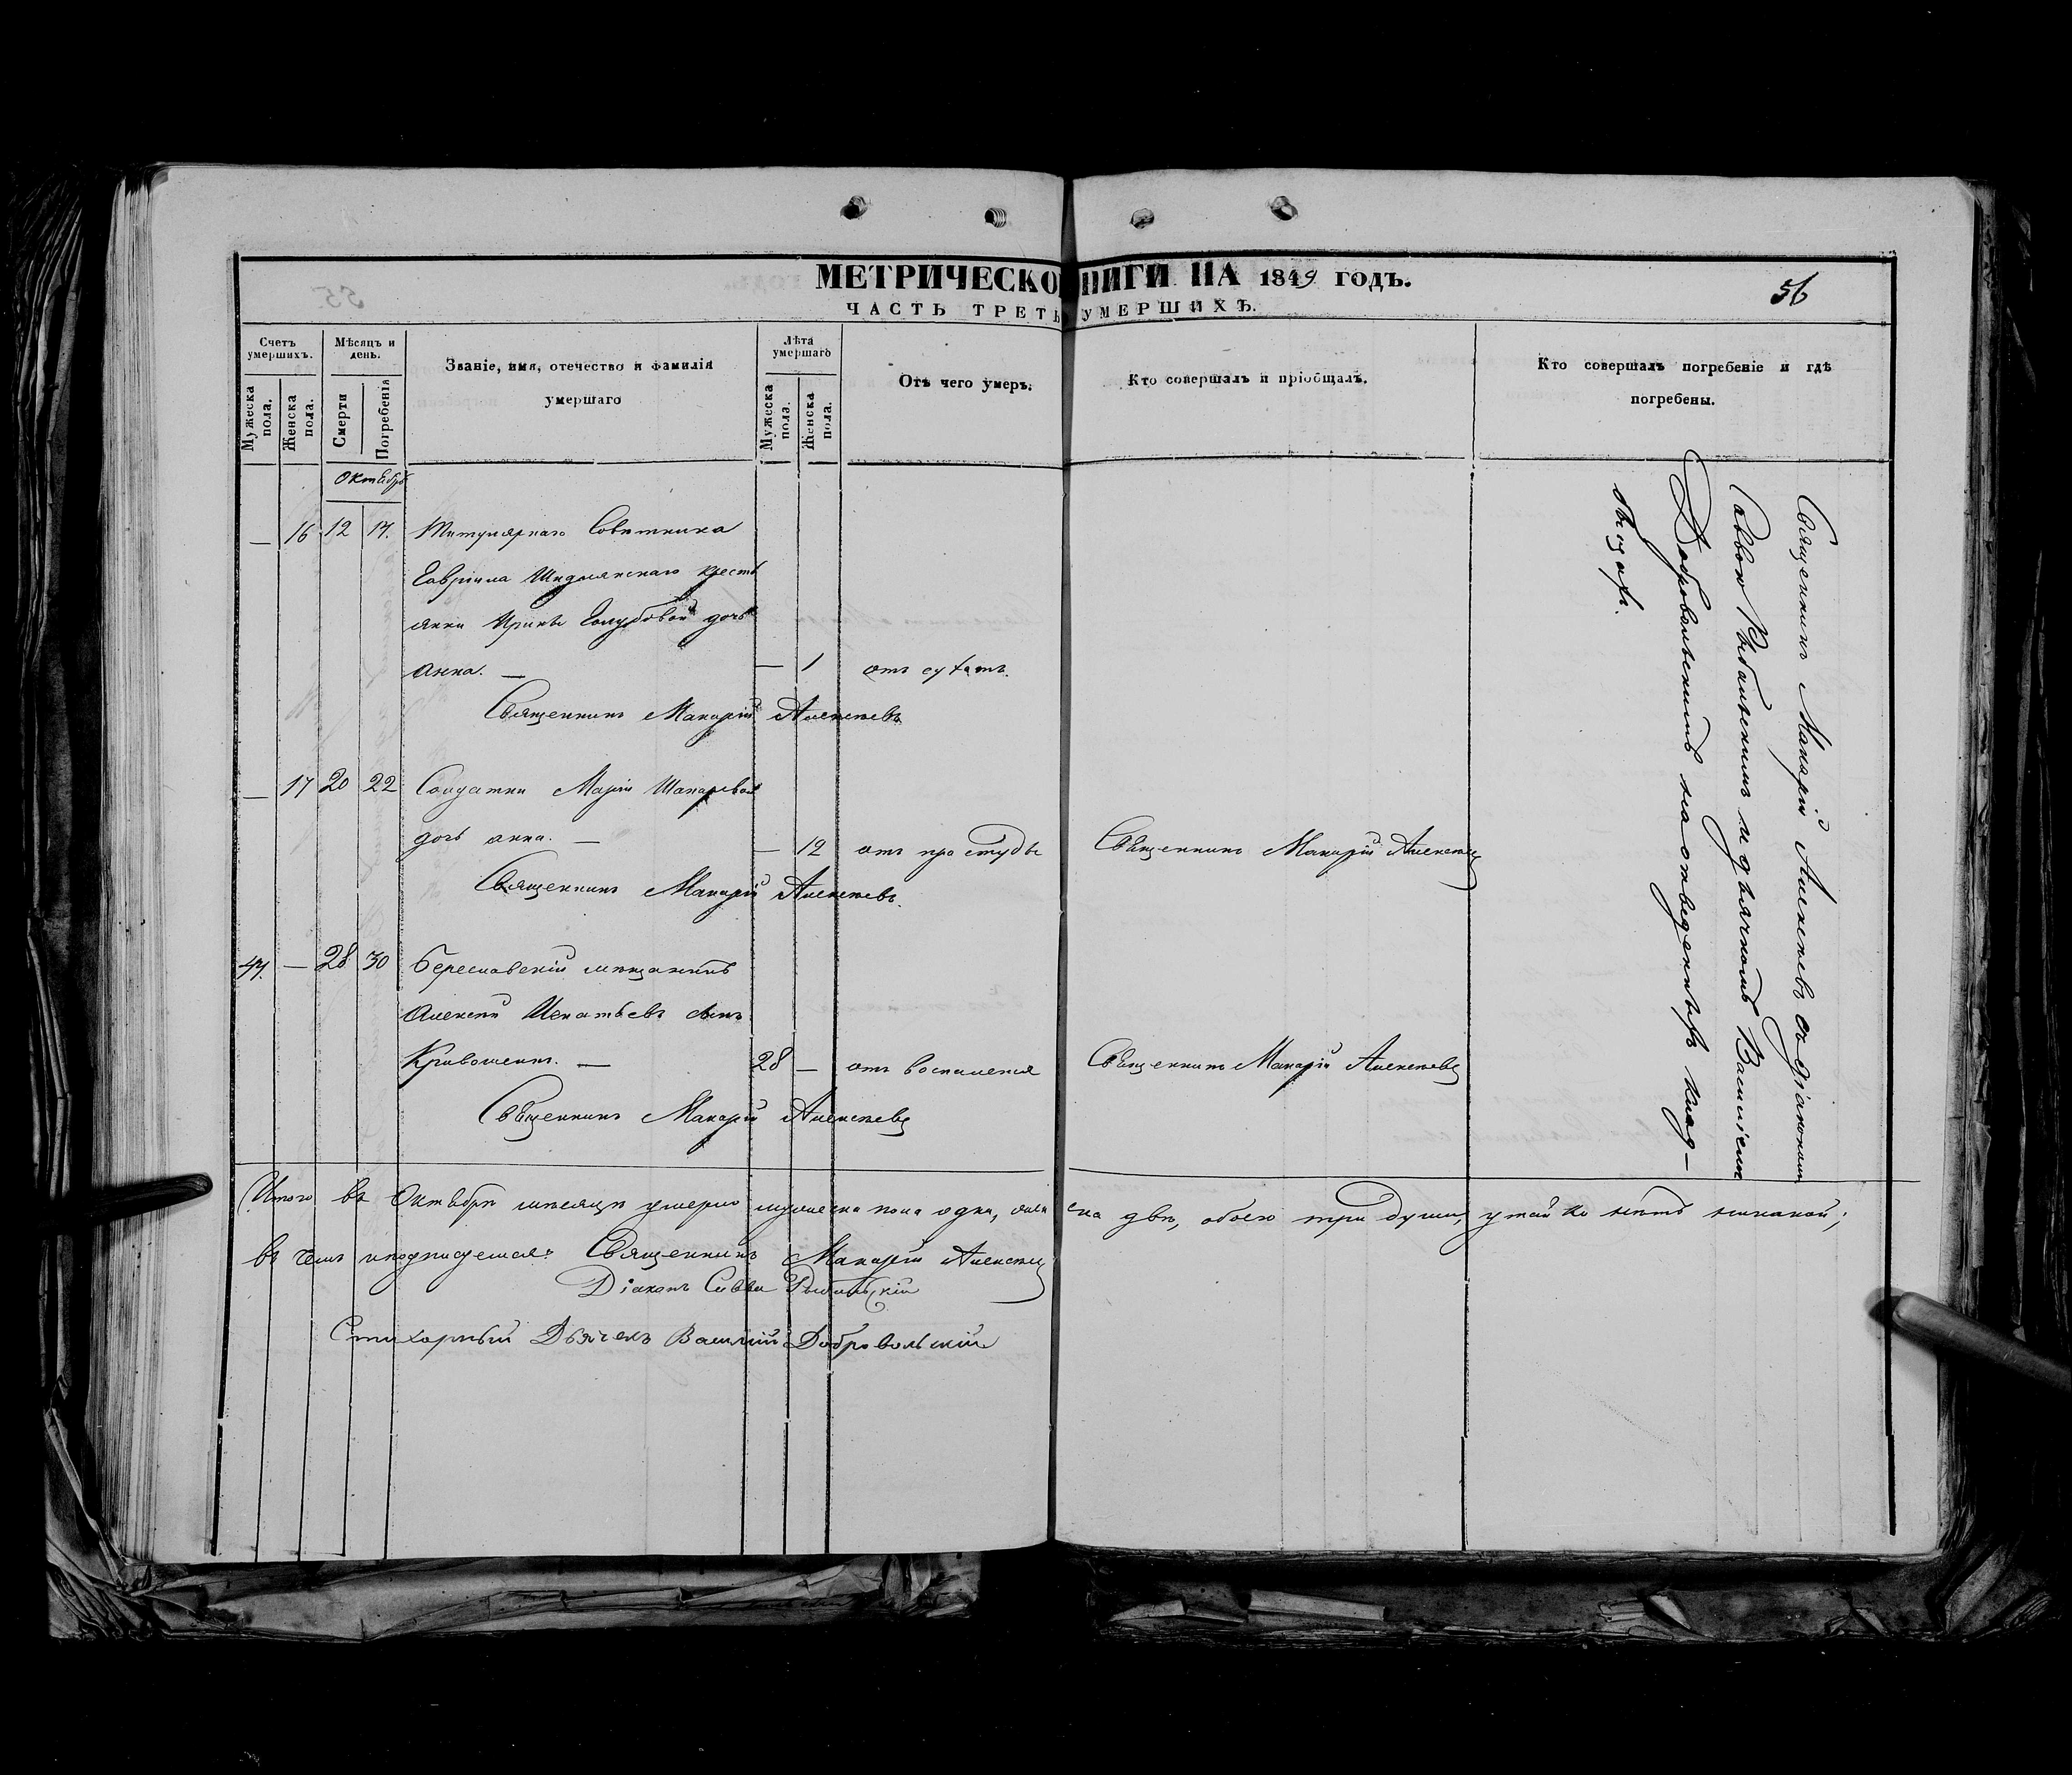 МЕТРИЧЕСКО НИГИ НА 1849 ГОДЪ.
ЧАСТЬ ТРЕТЬ УМЕРШИХЪ.
56
Счетъ умершихъ.
Мужеска пола.
Женска пола.
Мѣсяцъ и день.
Смерти
Погребенія
Званіе, имя, отечество и фамилія
умершаго
Лѣта умершаго
Мужеска пола.
Женска пола.
Отъ чего умеръ.
Кто совершалъ и пріобщалъ.
Кто совершалъ погребеніе и гдѣ
погребены.
Октябрь
— 16 12 14. Титулярнаго Совѣтника
Гавріила крестъ
янки Ирины Голубовой дочь
Анна. — — 1 отъ сухотъ.
Священникъ Макарій Алексѣевъ
— 17 20 22 Солдатки Маріи
дочь Анна. — — 12 отъ простуды Священникъ Макарій Алексѣевъ
Священникъ Макарій Алексѣевъ.
44. — 28 30 Бериславскій мѣщанинъ
Алексѣй Игнатьевъ сынъ
Кривошеинъ. — 28 — отъ воспаленія Священникъ Макарій Алексѣевъ
Священникъ Макарій Алексѣевъ
Священникъ Макарій Алексѣевъ съ діакономъ
Саввою Рыбальскимъ и дьячкомъ Василіемъ
Добровольскимъ на отведенномъ клад-
бищахъ.
Итого въ Октябрѣ мѣсяцѣ умерло мужеска пола одна, женска двѣ, обоего три души, утайки нѣтъ никакой;
въ чемъ и подписуемся: Священникъ Макарій Алексѣевъ
Діаконъ Савва Рыбальскій
Стихарный Дьячекъ Василій Добровольскій